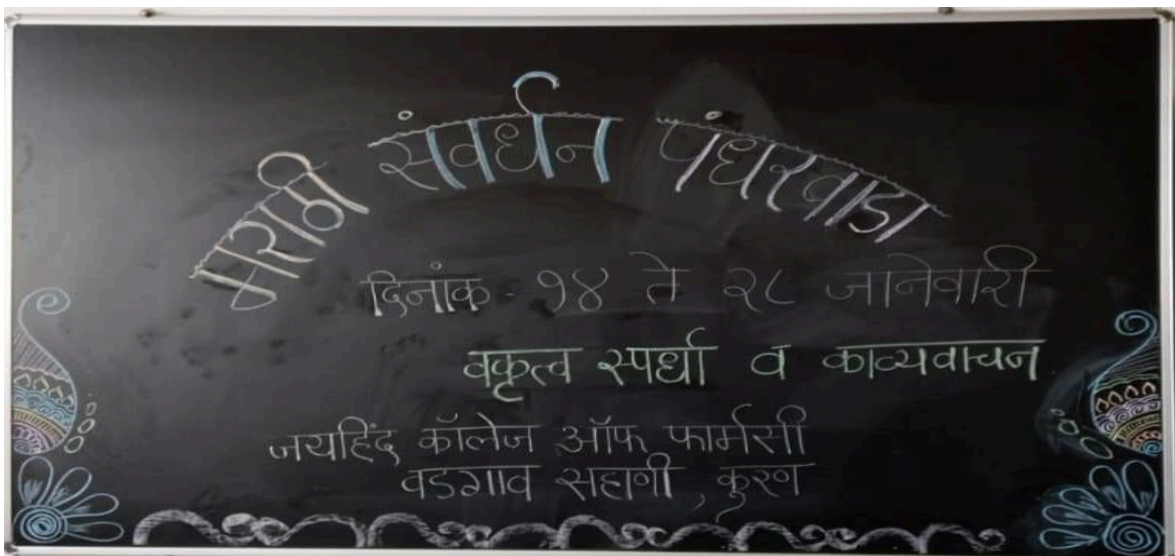 मराठी संवर्धन पंधरवाडा
दिनांक - १४ ते २८ जानेवारी
वकृत्व स्पर्धा व काव्यवाचन
जयहिंद कॉलेज ऑफ फार्मसी
वडगाव सहाणी, कुरण